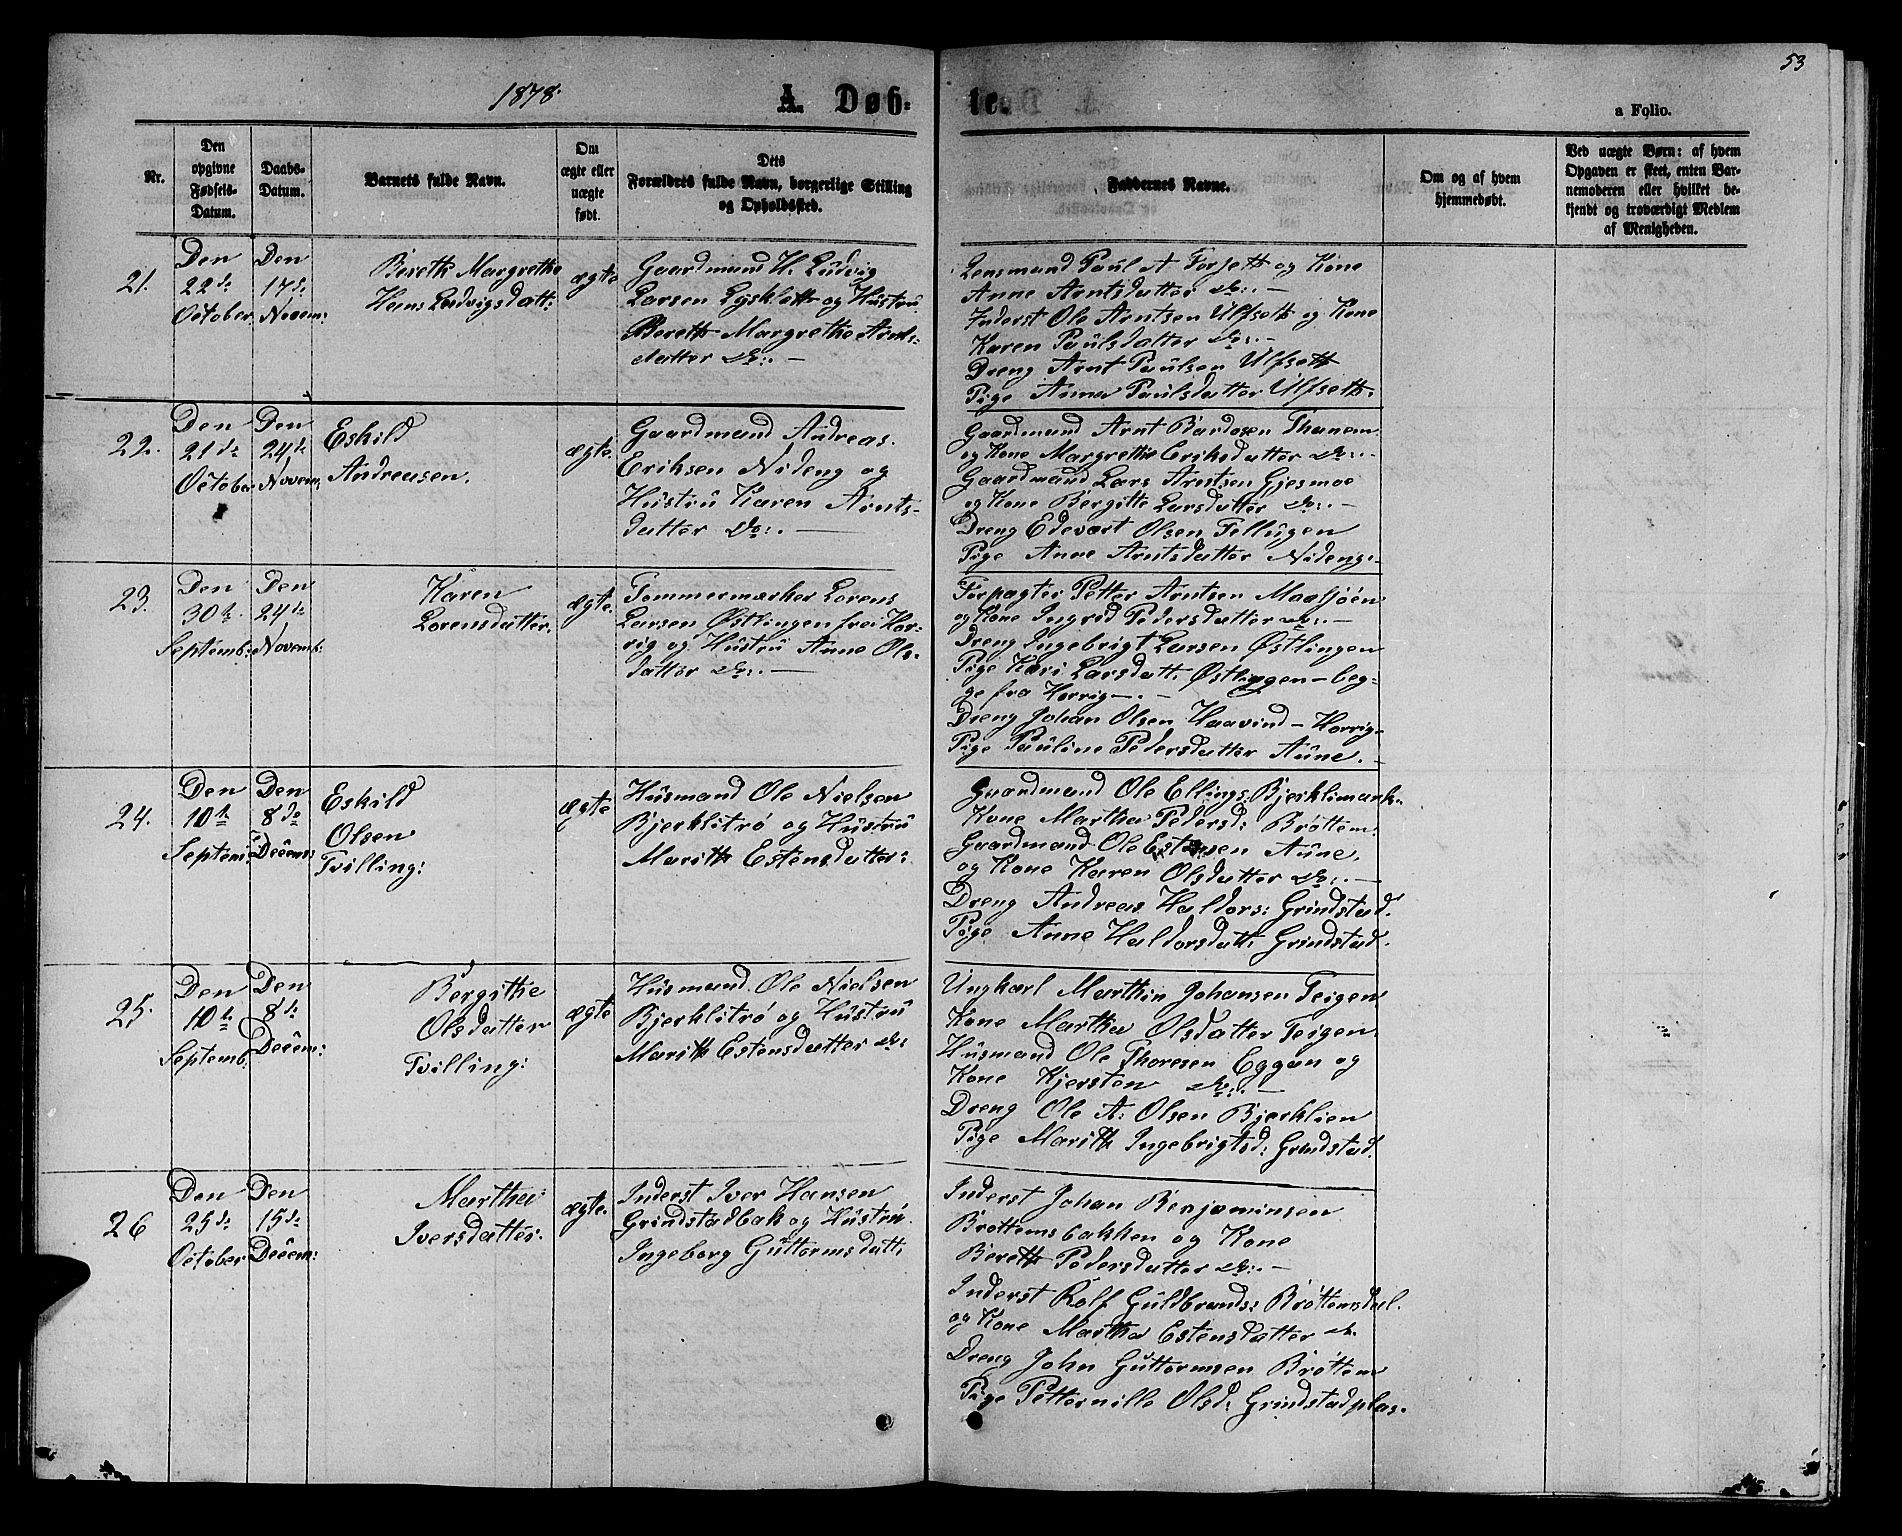 1878.
A. Døb=
te.
53
a Folio.
Nr.
Den
opgivne
Fødsels-
Datum.
Daabs-
Datum.
Barnets fulde Navn.
Om
ægte eller
uægte
født.
Dets
Forældres fulde Navn, borgerlige Stilling
og Opholdssted.
Faddernes Navne.
Om og af hvem
hjemmedøbt.
Ved uægte Børn: af hvem
Opgaven er skeet, enten Bar-
nemoderen eller hvilket be-
kjendt og troværdigt Medlem
af Menigheden.
21.
Den
22de
October
Den
17de
Novem:
Bereth Margrethe
Hans Ludvigsdatt:
ægte
Gaardmand H. Ludvig
Larsen Lysklett og Hustru
Bereth Margrethe Arnts-
datter do:. —
Lensmand Paul A Forseth og Kone
Anne Arntsdatter do:. —
Inderst Ole Arntsen Ulfseth og Kone
Karen Paulsdatter do:. —
Dreng Arnt Paulsen Ulfseth
Pige Anna Paulsdatter Ulfseth.
22.
Den
21de
October
Den
24de
Novem:
Eskild
Andreasen.
ægte.
Gaardmand Andreas.
Eriksen Nideng og
Hustru Karen Arnts-
datter do:. —
Gaardmand Arnt Bardosen Thanem
og Kone Margrethe Eriksdatter do:. —
Gaardmand Lars Arntsen Gjesmoe
og Kone Bergitte Larsdatter do:. —
Dreng Edevart Olsen Fellugen
Pige Anne Arntsdatter Nideng.-
23.
Den
30te
Septemb:
Den
24de
Novemb:
Karen
Lorensdatter.
ægte.
Tømmermærker Lorens
Larsen Østlingen fra Hor-
rig og Hustru Anne Ols-
datter do:. —
Forpagter Petter Arntsen Maalsjøen
og Kone Ingrid Pedersdatter do:. —
Dreng Ingebrigt Larsen Østlingen
Pige Kari Larsdatt: Østlingen — beg-
ge fra Horrig —. —
Dreng Johan Olsen Haavind — Horrig-
Pige Pauline Pedersdatter Aune. -
24.
Den
10te
Septem:
Den
8de
Decem:
Eskild
Olsen
Tvilling:
ægte
Husmand Ole Nielsen
Bjerklitrø og Hustru
Marith Estensdatter:
Gaardmand Ole Ellings: Bjerklimark.
Kone Martha Pedersd: Brøttem.
Gaardmand Ole Estensen Aune.
og Kone Karen Olsdatter do:. —
Dreng Andreas Haldors: Grindstad.
Pige Anne Haldorsdatt: Grindstad.
25.
Den
10te
Septemb:
Den
8de
Decem:
Bergithe
Olsdatter
Tvilling:
ægte
Husmand Ole Nielsen
Bjerklitrø og Hustru
Marith Estensdatter do:
Ungkarl Marthin Johansen Teigen
Kone Martha Olsdatter Teigen.
Husmand Ole Thoresen Eggan og
Kone Kjersten do:. —
Dreng Ole A: Olsen Bjerklien
Pige Marith Ingebrigtsd: Grindstad.
26
Den
25de
October
Den
15de
Decem:
Martha
Iversdatter.
ægte.
Inderst Iver Hansen
Grindstadbak og Hustru
Ingeborg Guttormsdatt:
Inderst Johan Benjaminsen
Brøttemsbakken og Kone
Bereth Pedersdatter do:. —
Inderst Rolf Guldbrands: Brøttemsdal.
og Kone Martha Estensdatter do.
Dreng John Guttormsen Brøttem
Pige Petternille Olsd: Grindstadplas.